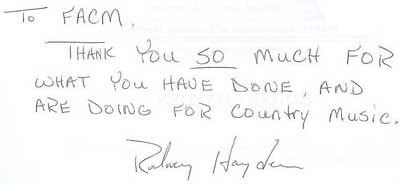 To FACM,
THANK YOU SO MUCH FOR
WHAT YOU HAVE DONE, AND
ARE DOING FOR COUNTRY MUSIC.
Rodney Hayden